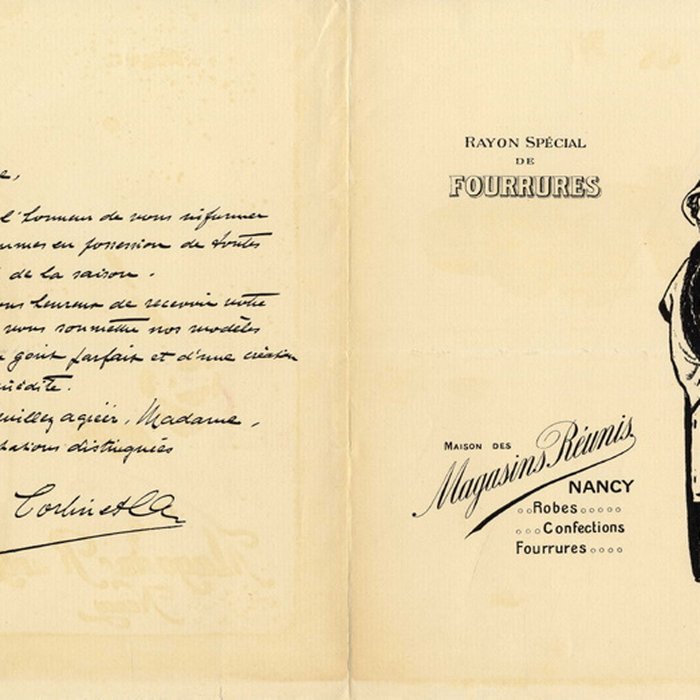 e,
l'honneur de vous informer
ommes en possession de toutes
de la saison.
ous heureux de recevoir votre
vous soumettre nos modèles
goût parfait et d'une création
inédite.
euillez agréer, Madame,
utations distinguées
Corbin et Cie
RAYON SPÉCIAL
DE
FOURRURES
MAISON DES
Magasins Réunis
NANCY
Robes
Confections
Fourrures